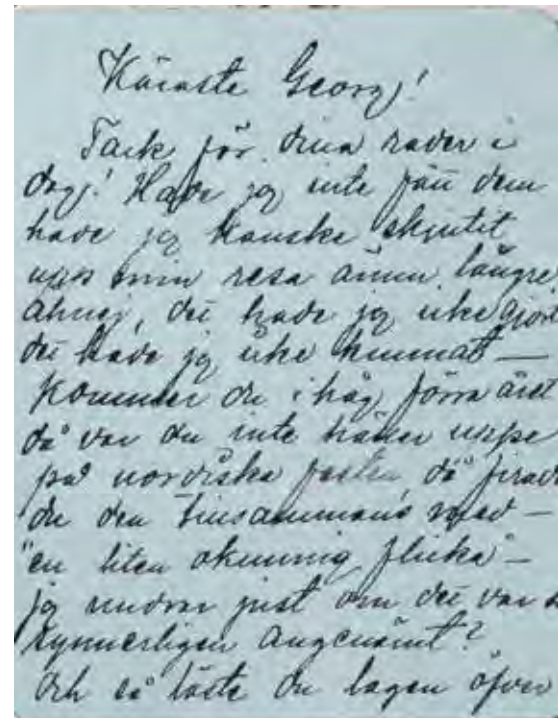 Käraste Georg!
Tack för dina rader i
dag! Hade jag inte fått dem
hade jag kanske skjutit
upp min resa ännu längre
ahnej, det hade jag icke gjort
det hade jag icke kunnat —
Kommer du i håg förra året
då var du inte häller uppe
på nordiska festen, då firade
du den tinsammans med —
"en liten okunnig flicka" —
jag undrar just om det var
synnerligen angenämt?
Och så läste du lagen öfver